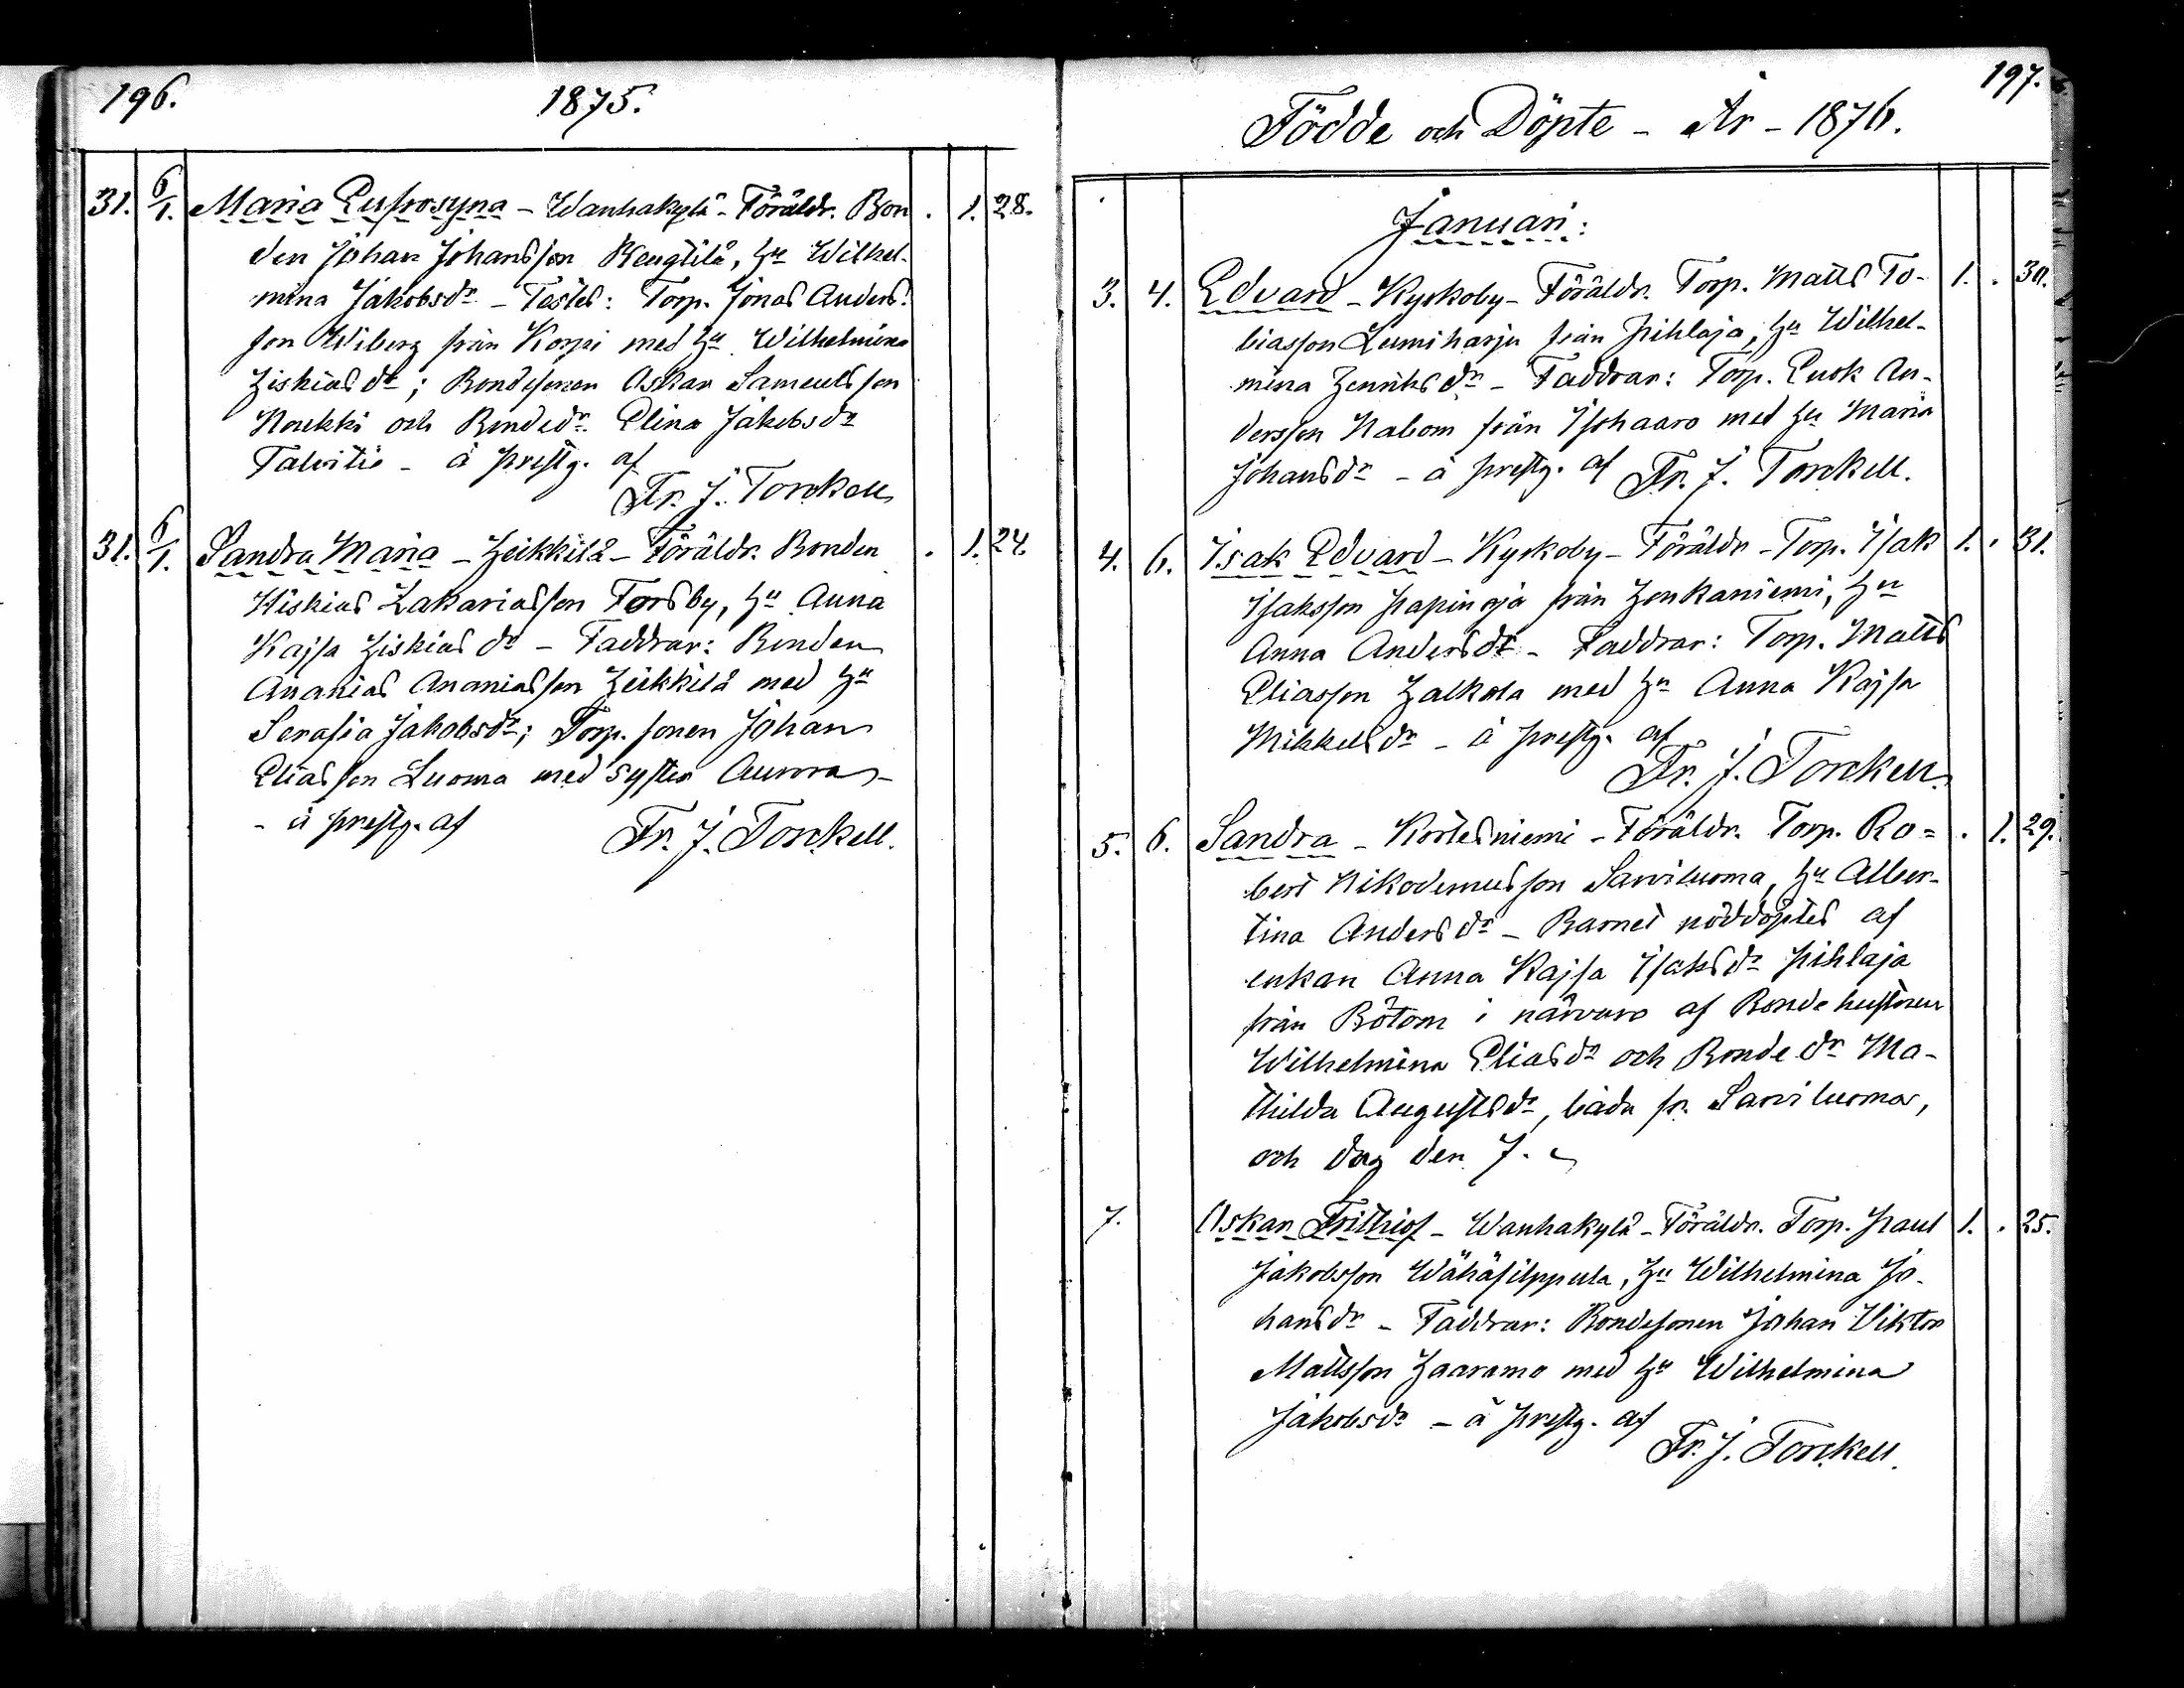 196.
1875.
31. 6/1. Maria Eufrosyna - Wanhakylä - Föräldr. Bon . 1. 28.
den Johan Johansson Rengtilä, Hu Wilhel-
mina Jakobsdr - Testes: Torp. Jonas Anders-
son Wiberg från Korpi med Hu Wilhelmina
Hiskiasdr; Bondesonen Oskar Samuelsson
Noukki och Bondedr. Elina Jakobsdr
Talvitie - å prestg. af
Fr. J. Torckell
31. 6/1. Sandra Maria - Heikkilä - Föräldr. Bonden . 1. 24.
Hiskias Zakariasson Forsby, Hu Anna
Kajsa Hiskiasdr - Faddrar: Bonden
Ananias Ananiasson Heikkilä med Hu
Serafia Jakobsdr; Torp. sonen Johan
Eliasson Luoma med syster Aurora -
- å prestg. af Fr. J. Torckell.
197.
Födde och Döpte - År - 1876.
Januari:
3. 4. Edvard - Kyrkoby - Föräldr. Torp. Matts To- 1. . 30.
biasson Lumiharju från Pihlaja, Hu Wilhel-
mina Henriksdr - Faddrar: Torp. Enok An-
dersson Nabom från Isohaaro med Hu Maria
Johansdr - å prestg. af Fr. J. Torckell.
4. 6. Isak Edvard - Kyrkoby - Föräldr - Torp. Isak 1. . 31.
Isaksson Papinoja från Honkaniemi, Hu
Anna Andersdr - Faddrar: Torp. Matts
Eliasson Halkola med Hu Anna Kajsa
Mikkelsdr - å prestg. af
Fr. J. Torckell.
5. 6. Sandra - Kortesniemi - Föräldr. Torp. Ro= . 1. 29.
bert Nikodemusson Sarviluoma, Hu Alber-
tina Andersdr - Barnet nöddöptes af
enkan Anna Kajsa Isaksdr Pihlaja
från Bötom i närvaro af Bondehustrun
Wilhelmina Eliasdr och Bondedr Ma-
thilda Augustsdr, båda fr. Sarviluoma,
och dog den 7.
7. Oskar Frithiof - Wanhakylä - Föräldr. Torp. Paul 1. . 25.
Jakobsson Wähäfilppula, Hu Wilhelmina Jo-
hansdr - Faddrar: Bondesonen Johan Viktor
Mattsson Haaramo med Hu Wilhelmina
Jakobsdr - å prestg. af
Fr. J. Torckell.